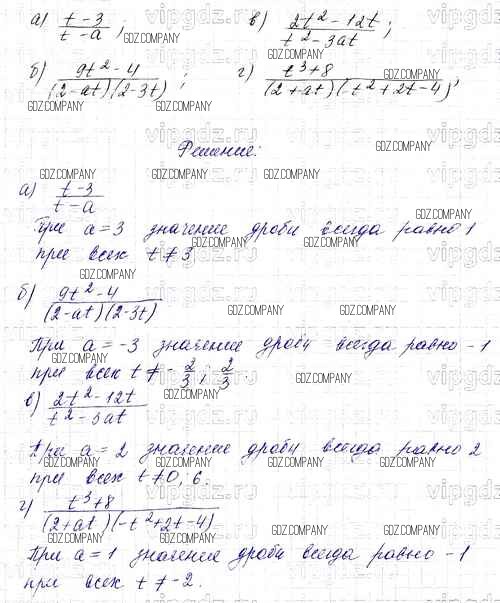 а) t-3 / t-a ; в) 2t²-12t / t²-3at ;
б) 9t²-4 / (2-at)(2-3t) ; г) t³+8 / (2+at)(t²+2t-4) ;
Решение:
а) t-3 / t-a
При a=3 значение дроби всегда равно 1
при всех t≠3
б) 9t²-4 / (2-at)(2-3t)
При a=-3 значение дроби всегда равно -1
при всех t≠-2/3; 2/3.
в) 2t²-12t / t²-3at
При a=2 значение дроби всегда равно 2
при всех t≠0; 6.
г) t³+8 / (2+at)(-t²+2t-4)
При a=1 значение дроби всегда равно -1
при всех t≠-2.
vipgdz.ru
GDZ.COMPANY